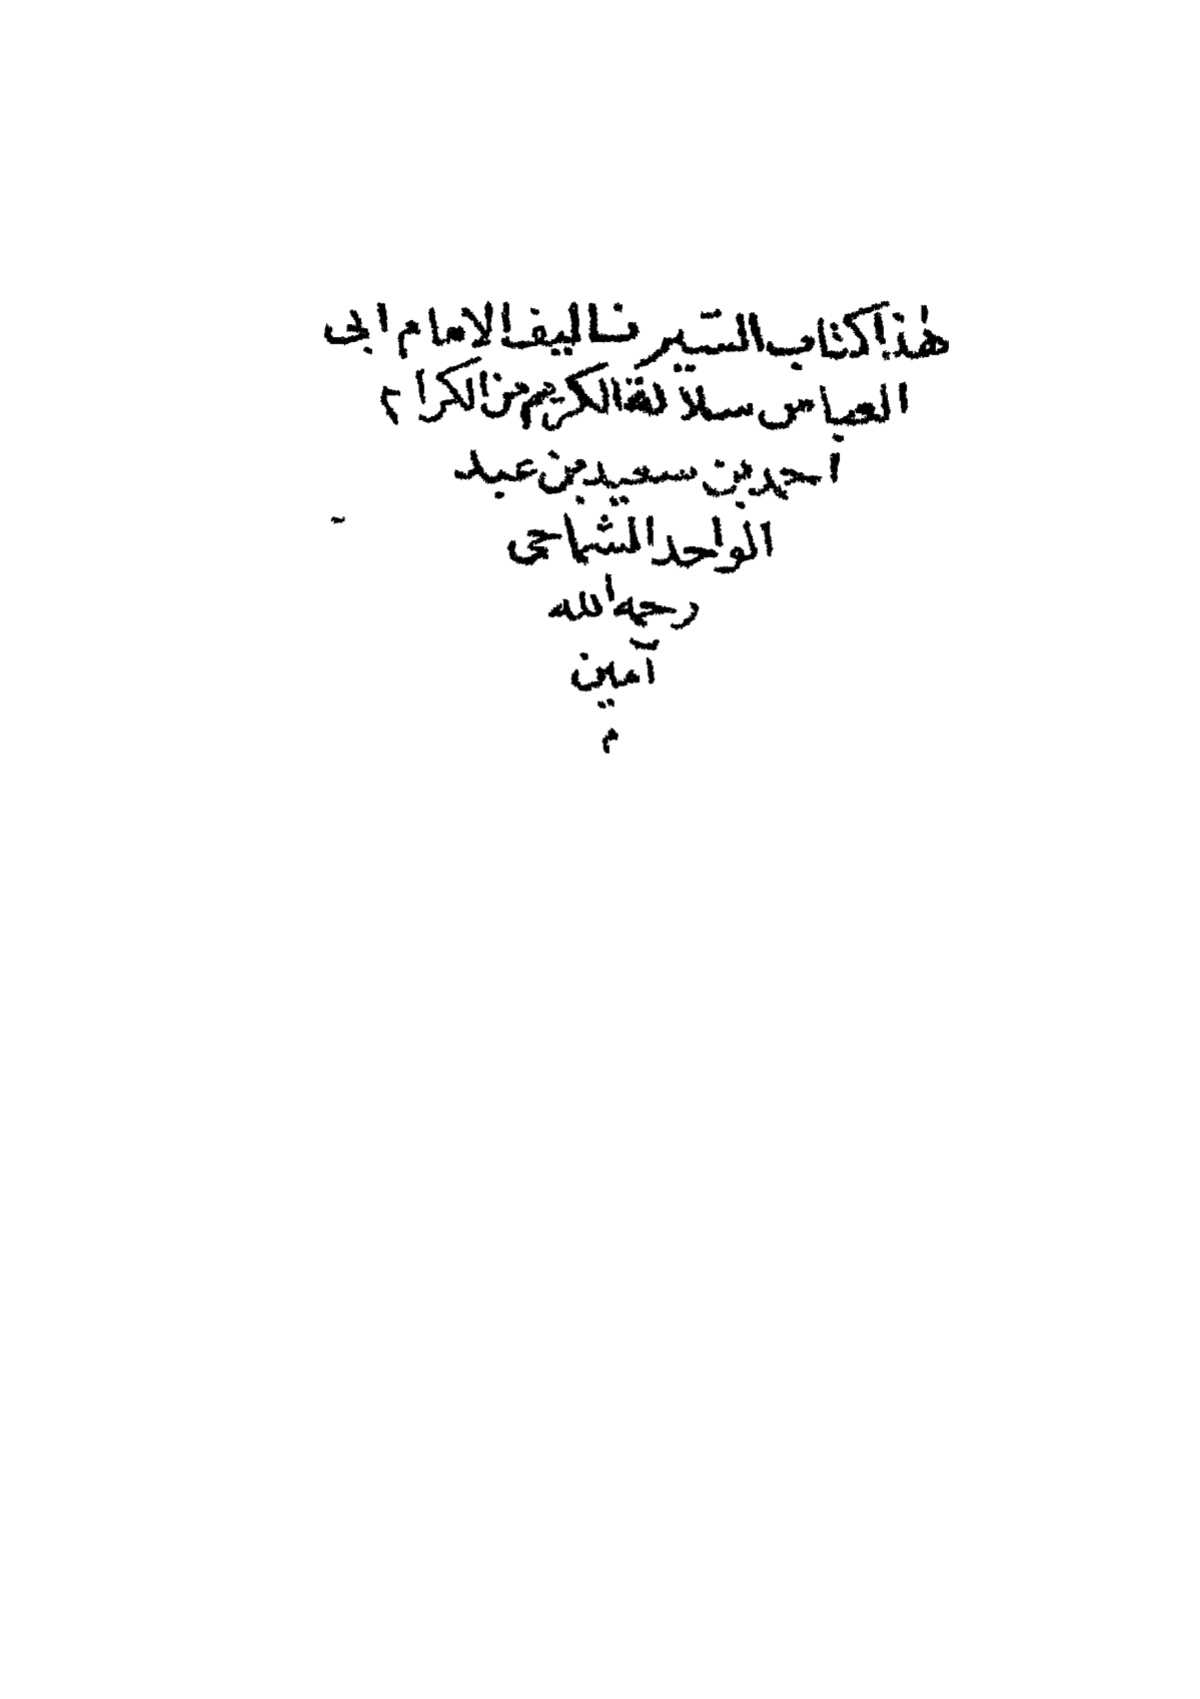 هٰذا كتاب السير تاليف الامام ابى
العباس سلالة الكريم من الكرام
احمد بن سعيد بن عبد
الواحد الشماحى
رحمه الله
آمين
م